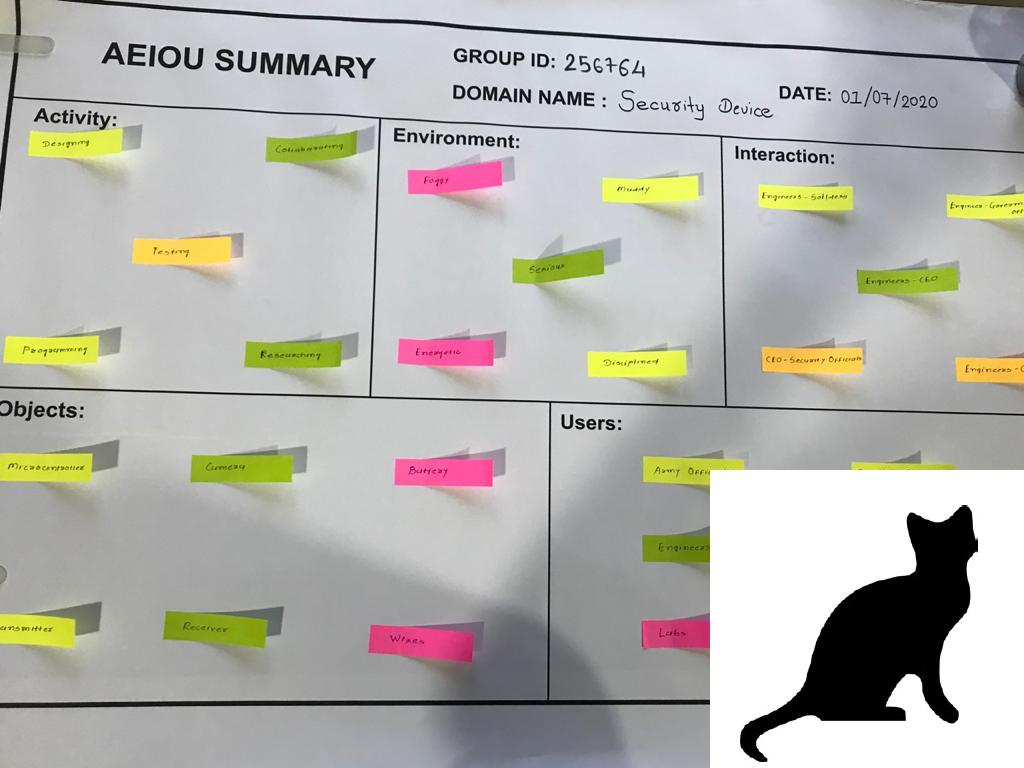 AEIOU SUMMARY
GROUP ID: 256764
DOMAIN NAME : Security Device
DATE: 01/07/2020
Activity:
Designing
Collaborating
Testing
Programming
Researching
Environment:
Foggy
Muddy
Serious
Energetic
Disciplined
Interaction:
Engineers - Soldiers
Engineer - Govern
off
Engineers - CEO
CEO - Security Officials
Engineers - C
Objects:
Microcontroller
Camera
Battery
ansmitter
Receiver
Wires
Users:
Army Offi
Engineers
Labs